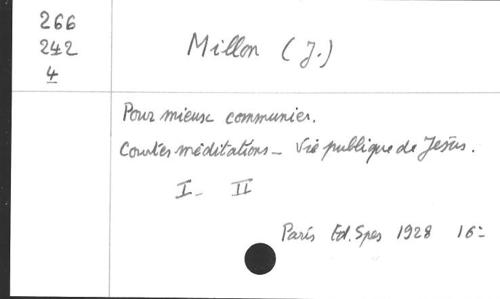 266
242
4
Millon (J.)
Pour mieux communier.
Courtes méditations - Vie publique de Jésus.
I - II
Paris Ed. Spes 1928 16=